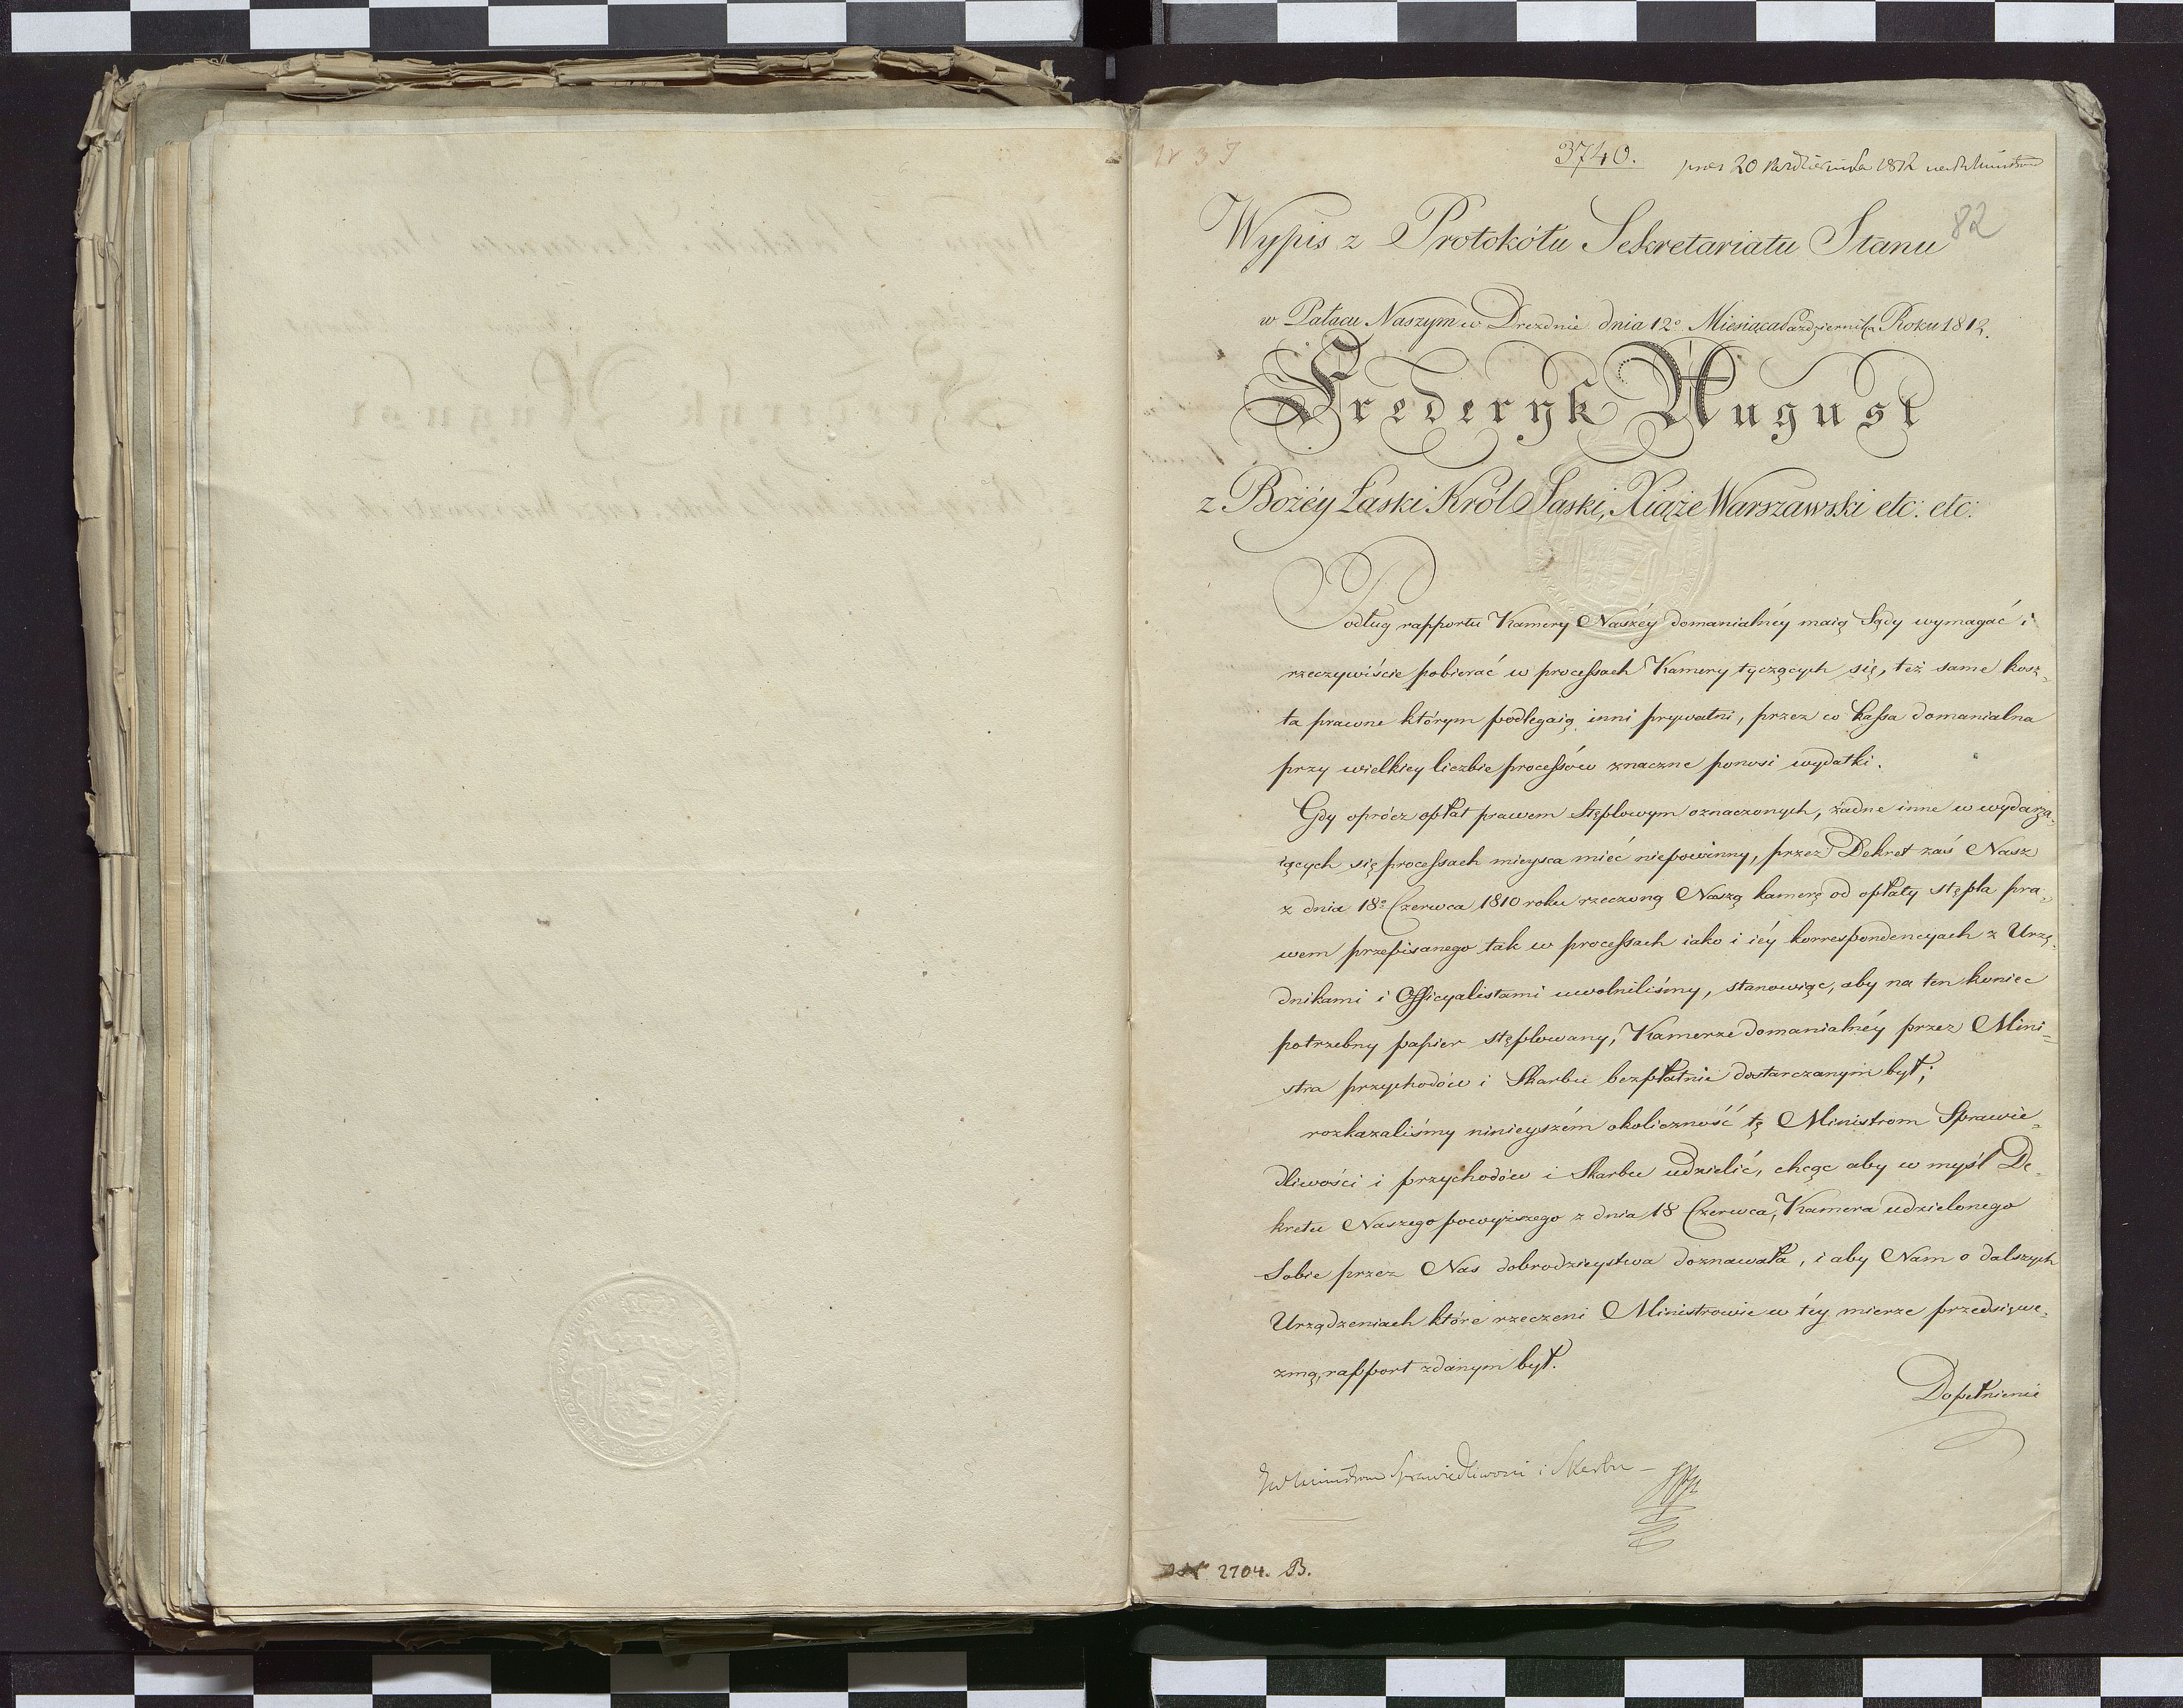 3740.
20 Października 1812
82
Wypis z Protokółu Sekretariatu Stanu
w Pałacu Naszym w Dreznie dnia 12º Miesiąca Października Roku 1812.
Frederyk August
z Bożéy Łaski Król Saski, Xiąże Warszawski etc: etc:
Podług rapportu Kamery Naszéy domanialnéy maią Sądy wymagać i
rzeczywiście pobierać w processach Kamery tyczących się, też same kosz=
ta prawne którym podlegaią inni prywatni, przez co kassa domanialna
przy wielkiey liczbie processów znaczne ponosi wydatki.
Gdy oprócz opłat prawem Stęplowym oznaczonych, żadne inne w wydarza=
iących się processach mieysca mieć niepowinny, przez Dekret zaś Nasz
z dnia 18º Czerwca 1810 roku rzeczoną Naszą kamerę od opłaty stępla pra=
wem przepisanego tak w processach iako i iéy korrespondencyach z Urzę=
dnikami i Officyalistami uwolniliśmy, stanowiąc, aby na ten koniec
potrzebny papier stęplowany, Kamerze domanialnéy przez Mini=
stra przychodów i Skarbu bezpłatnie dostarczanym był;
rozkazaliśmy ninieyszém okoliczność tę Ministrom Sprawie=
dliwości i przychodów i Skarbu udzielić, chcąc aby w myśl De=
kretu Naszego powyższego z dnia 18 Czerwca, Kamera udzielonego
Sobie przez Nas dobrodzieystwa doznawała, i aby Nam o dalszych
Urządzeniach które rzeczeni Ministrowie w téy mierze przedsięwe=
zmą, rapport zdanym był.
Dopełnienie
Ministrom Sprawiedliwości i Skarbu –
2704. B.